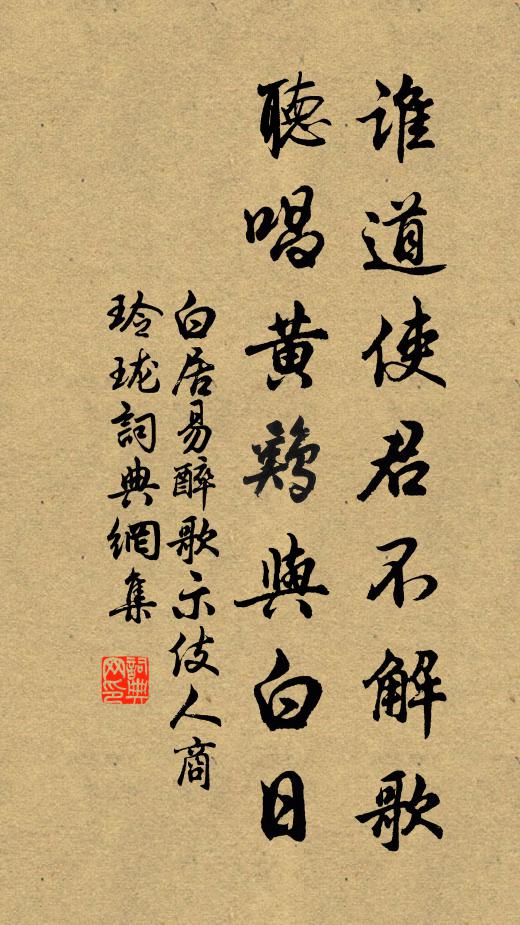 誰道使君不解歌
聽唱黃鷄與白日
白居易醉歌示伎人商
玲瓏詞典網集
詞典网印